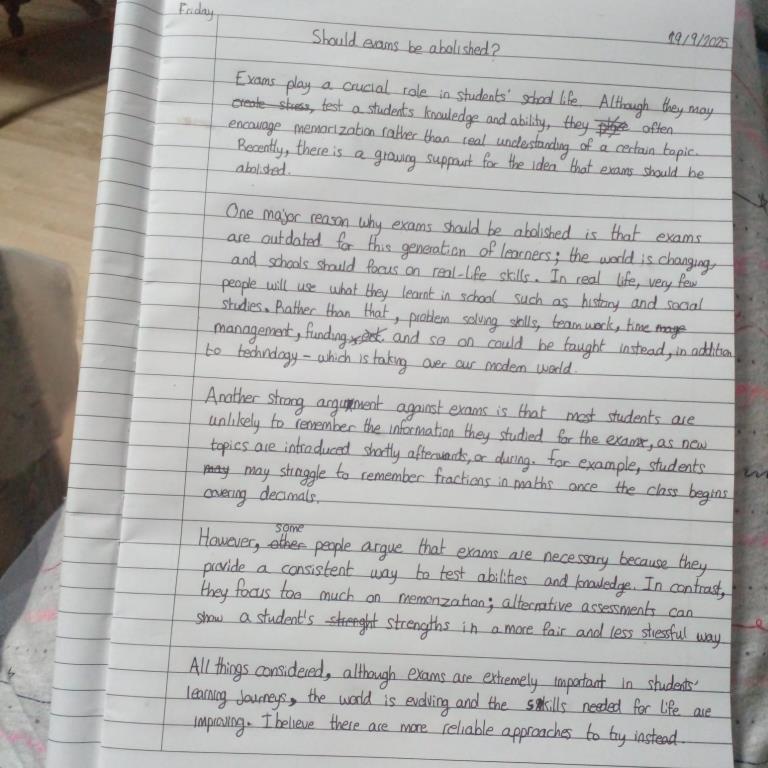 Friday
19/9/2025
Should exams be abolished?
Exams play a crucial role in students' school life. Although they may
create stress, test a students knowledge and ability, they often
encourage memorization rather than real understanding of a certain topic.
Recently, there is a growing support for the idea that exams should be
abolished.
One major reason why exams should be abolished is that exams
are outdated for this generation of learners; the world is changing,
and schools should focus on real-life skills. In real life, very few
people will use what they learnt in school such as history and social
studies. Rather than that, problem solving skills, teamwork, time mage
management, funding, and so on could be taught instead, in addition
to technology - which is taking over our modern world.
Another strong argument against exams is that most students are
unlikely to remember the information they studied for the exam, as new
topics are introduced shortly afterwards, or during. For example, students
may may struggle to remember fractions in maths once the class begins
covering decimals.
some
However, other people argue that exams are necessary because they
provide a consistent way to test abilities and knowledge. In contrast,
they focus too much on memorization; alternative assessments can
show a student's strenght strengths in a more fair and less stressful way
All things considered, although exams are extremely important in students'
learning journeys, the world is evolving and the skills needed for life are
improving. I believe there are more reliable approaches to try instead.